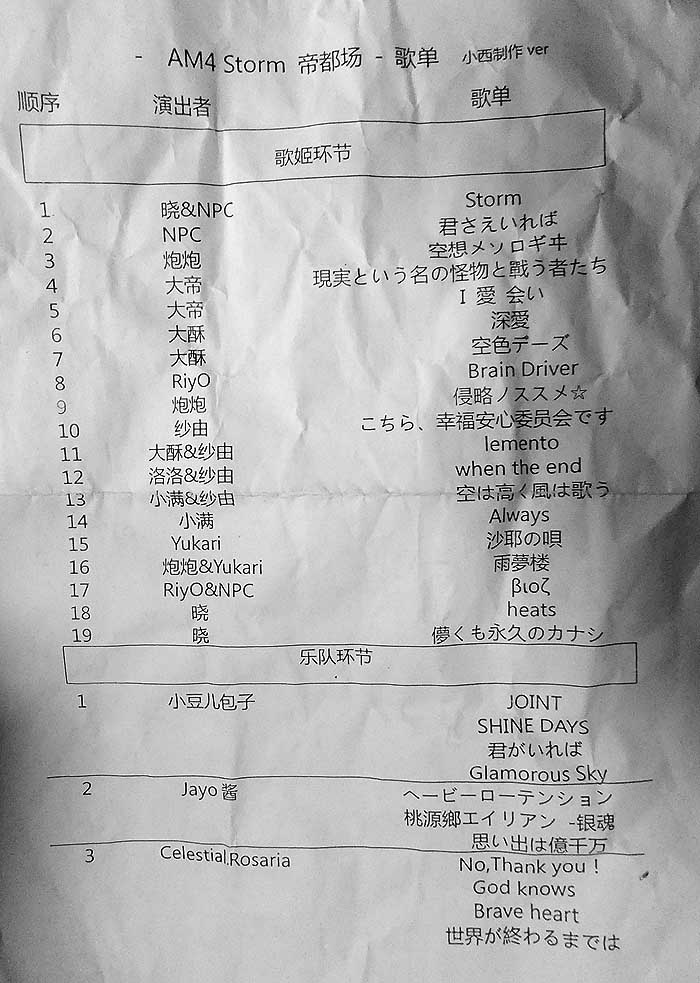 - AM4 Storm 帝都场 - 歌单 小西制作 ver
顺序 演出者 歌单
歌姬环节
1. 晓&NPC Storm
2 NPC 君さえいれば
3 炮炮 空想メソロギヰ
4 大帝 現実という名の怪物と戰う者たち
5 大帝 I 愛 会い
6 大酥 深愛
7 大酥 空色デーズ
8 RiyO Brain Driver
9 炮炮 侵略ノススメ☆
10 纱由 こちら、幸福安心委员会です
11 大酥&纱由 lemento
12 洛洛&纱由 when the end
13 小满&纱由 空は高く風は歌う
14 小满 Always
15 Yukari 沙耶の唄
16 炮炮&Yukari 雨夢楼
17 RiyO&NPC βιοζ
18 晓 heats
19 晓 儚くも永久のカナシ
乐队环节
1 小豆儿包子 JOINT
SHINE DAYS
君がいれば
Glamorous Sky
2 Jayo 酱 ヘービーローテンション
桃源郷エイリアン -银魂
思い出は億千万
3 Celestial.Rosaria No,Thank you！
God knows
Brave heart
世界が終わるまでは